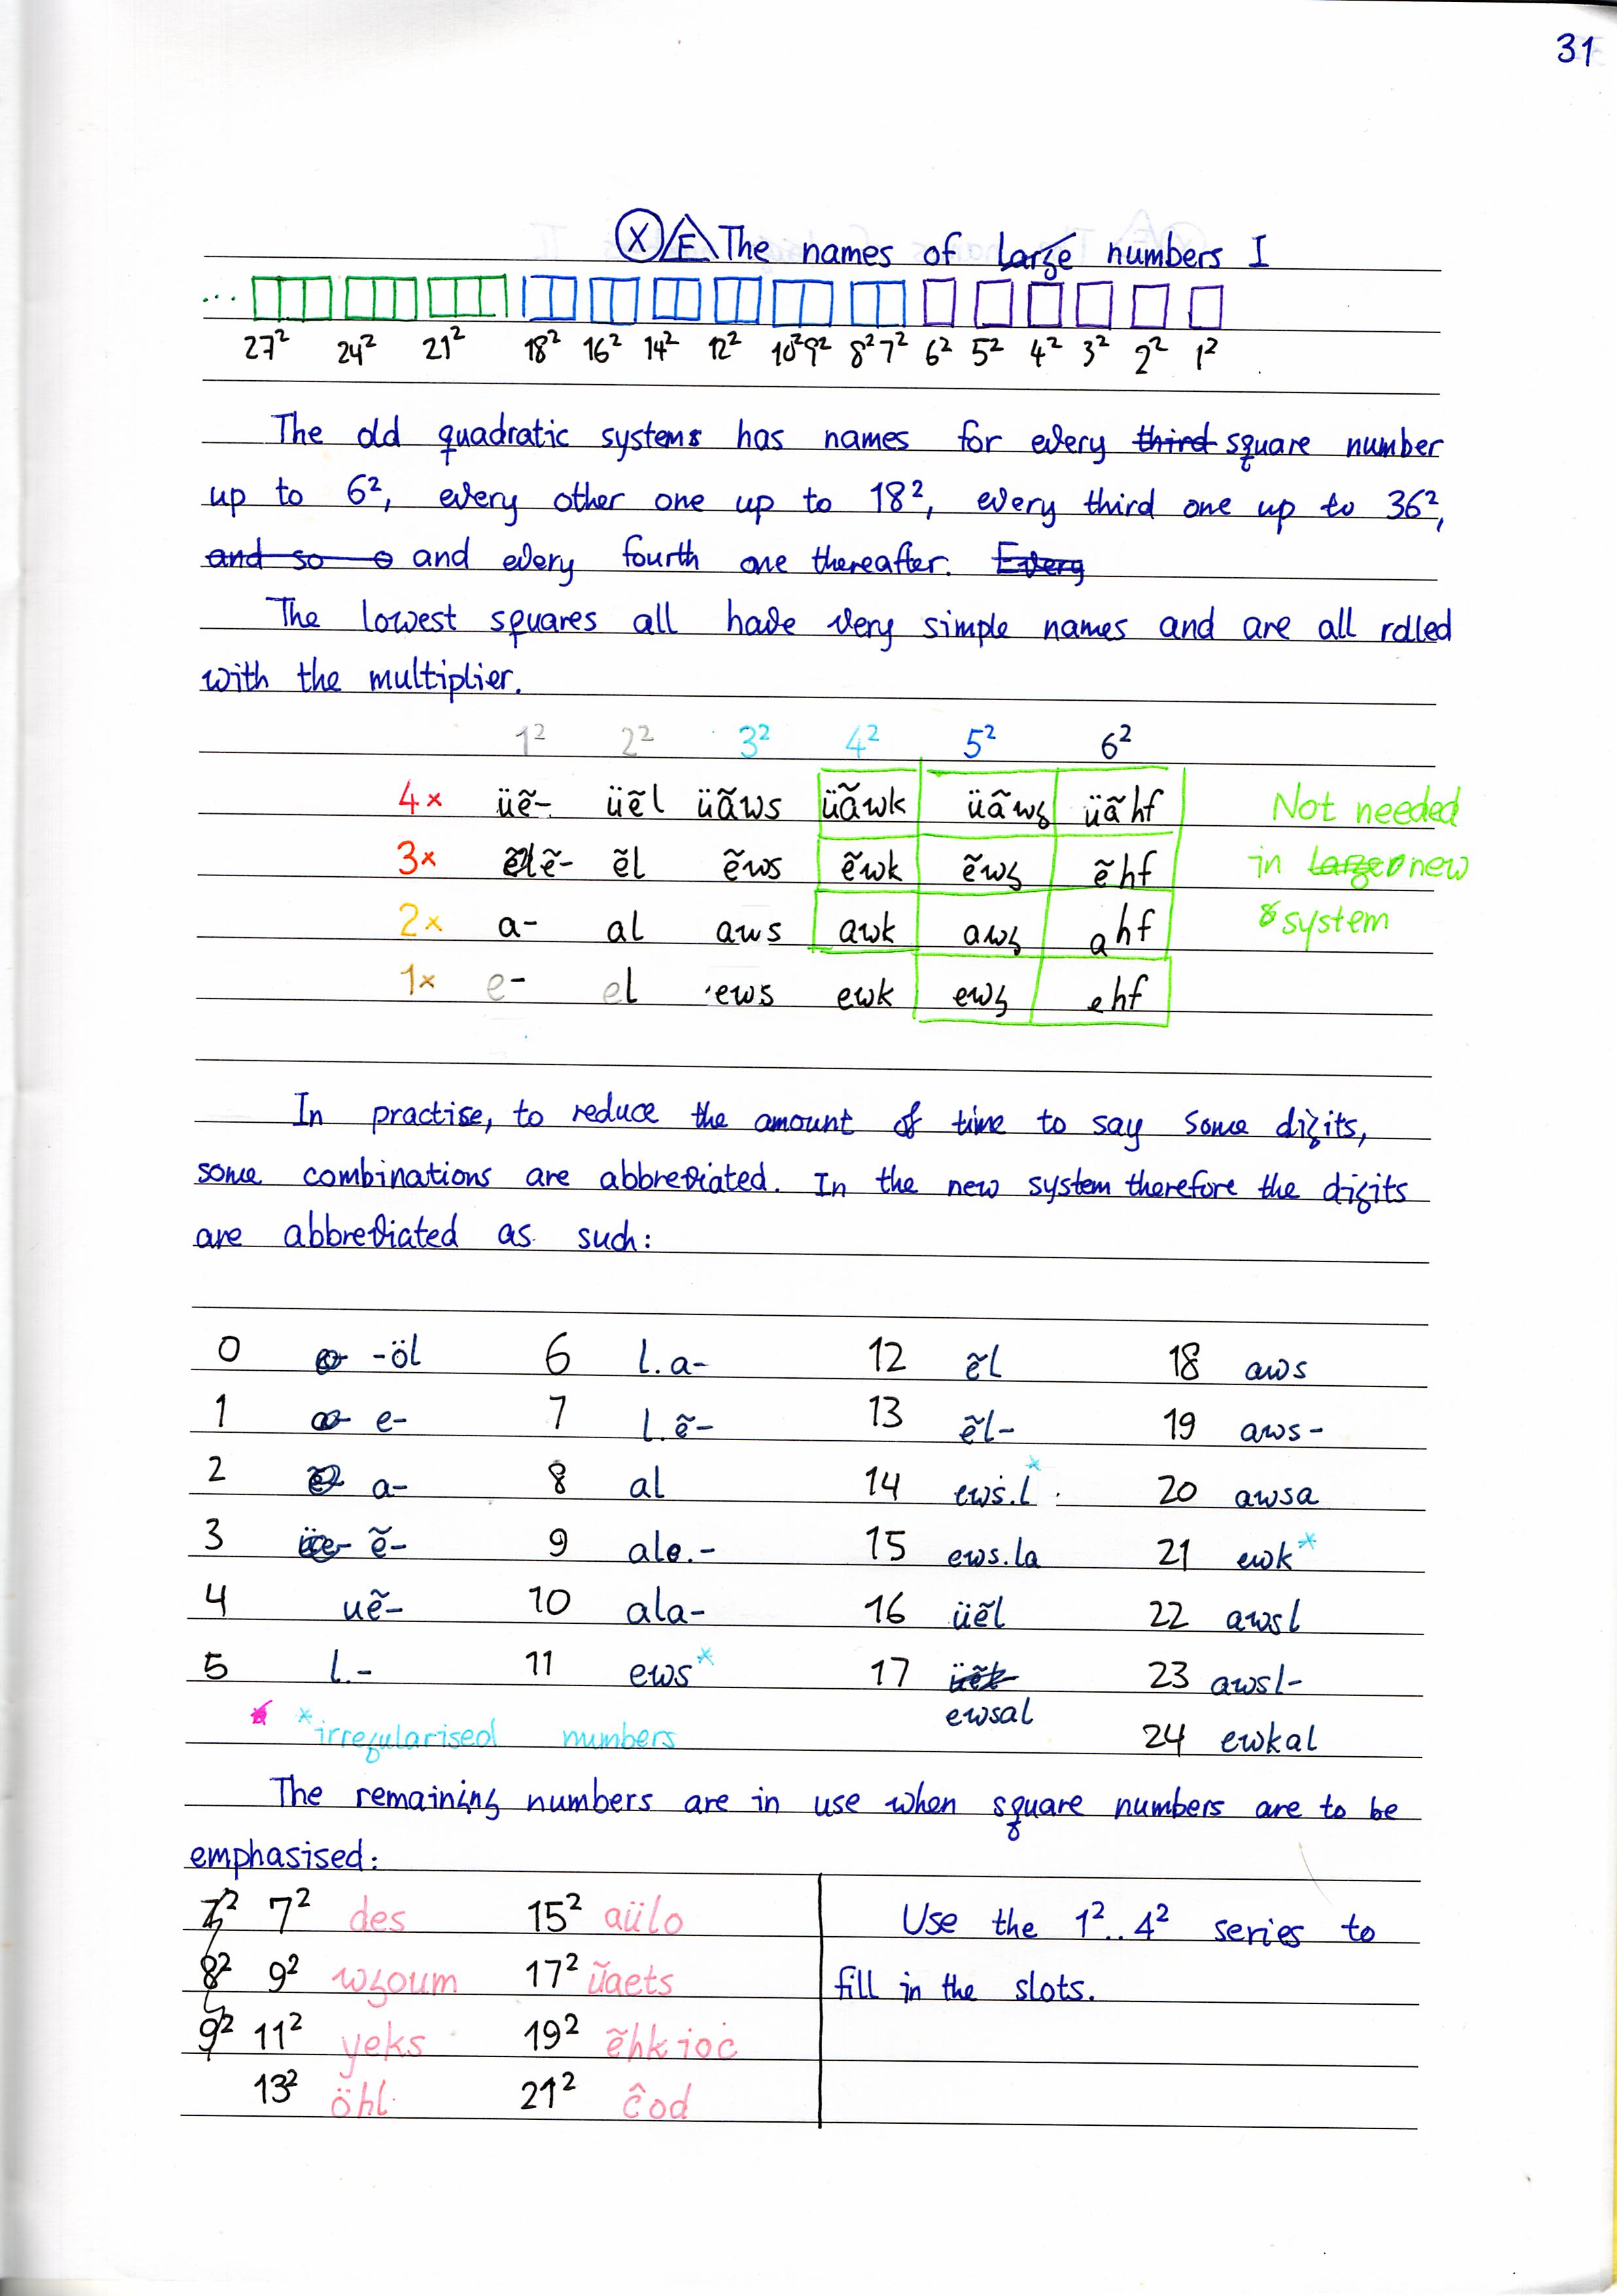 31
X E The names of large numbers I
...
27² 24² 21² 18² 16² 14² 12² 10² 9² 8² 7² 6² 5² 4² 3² 2² 1²
The old quadratic systems has names for every third square number
up to 6², every other one up to 18², every third one up to 36²,
and so o and every fourth one thereafter. Every
The lowest squares all have very simple names and are all rolled
with the multiplier.
1² 2² 3² 4² 5² 6²
4× üẽ- üẽl üãws üãwk üãwꝣ üãhf Not needed
3× ẽ- ẽl ẽws ẽwk ẽwꝣ ẽhf in large new
2× a- al aws awk awꝣ ahf system
1× e- el ews ewk ewꝣ ehf
In practise, to reduce the amount of time to say some digits,
some combinations are abbreviated. In the new system therefore the digits
are abbreviated as such:
0 -öl 6 l.a- 12 ẽl 18 aws
1 e- 7 l.ẽ- 13 ẽl- 19 aws-
2 a- 8 al 14 ews.l* 20 awsa
3 ẽ- 9 ale.- 15 ews.la 21 ewk*
4 uẽ- 10 ala- 16 üẽl 22 awsl
5 l.- 11 ews* 17 ewsal 23 awsl-
*irregularised numbers 24 ewkal
The remaining numbers are in use when square numbers are to be
emphasised:
7² 7² des 15² aülo Use the 1²..4² series to
8² 9² wꝣoum 17² ũaets fill in the slots.
9² 11² yeks 19² ẽhkioċ
13² öhl 21² ĉod